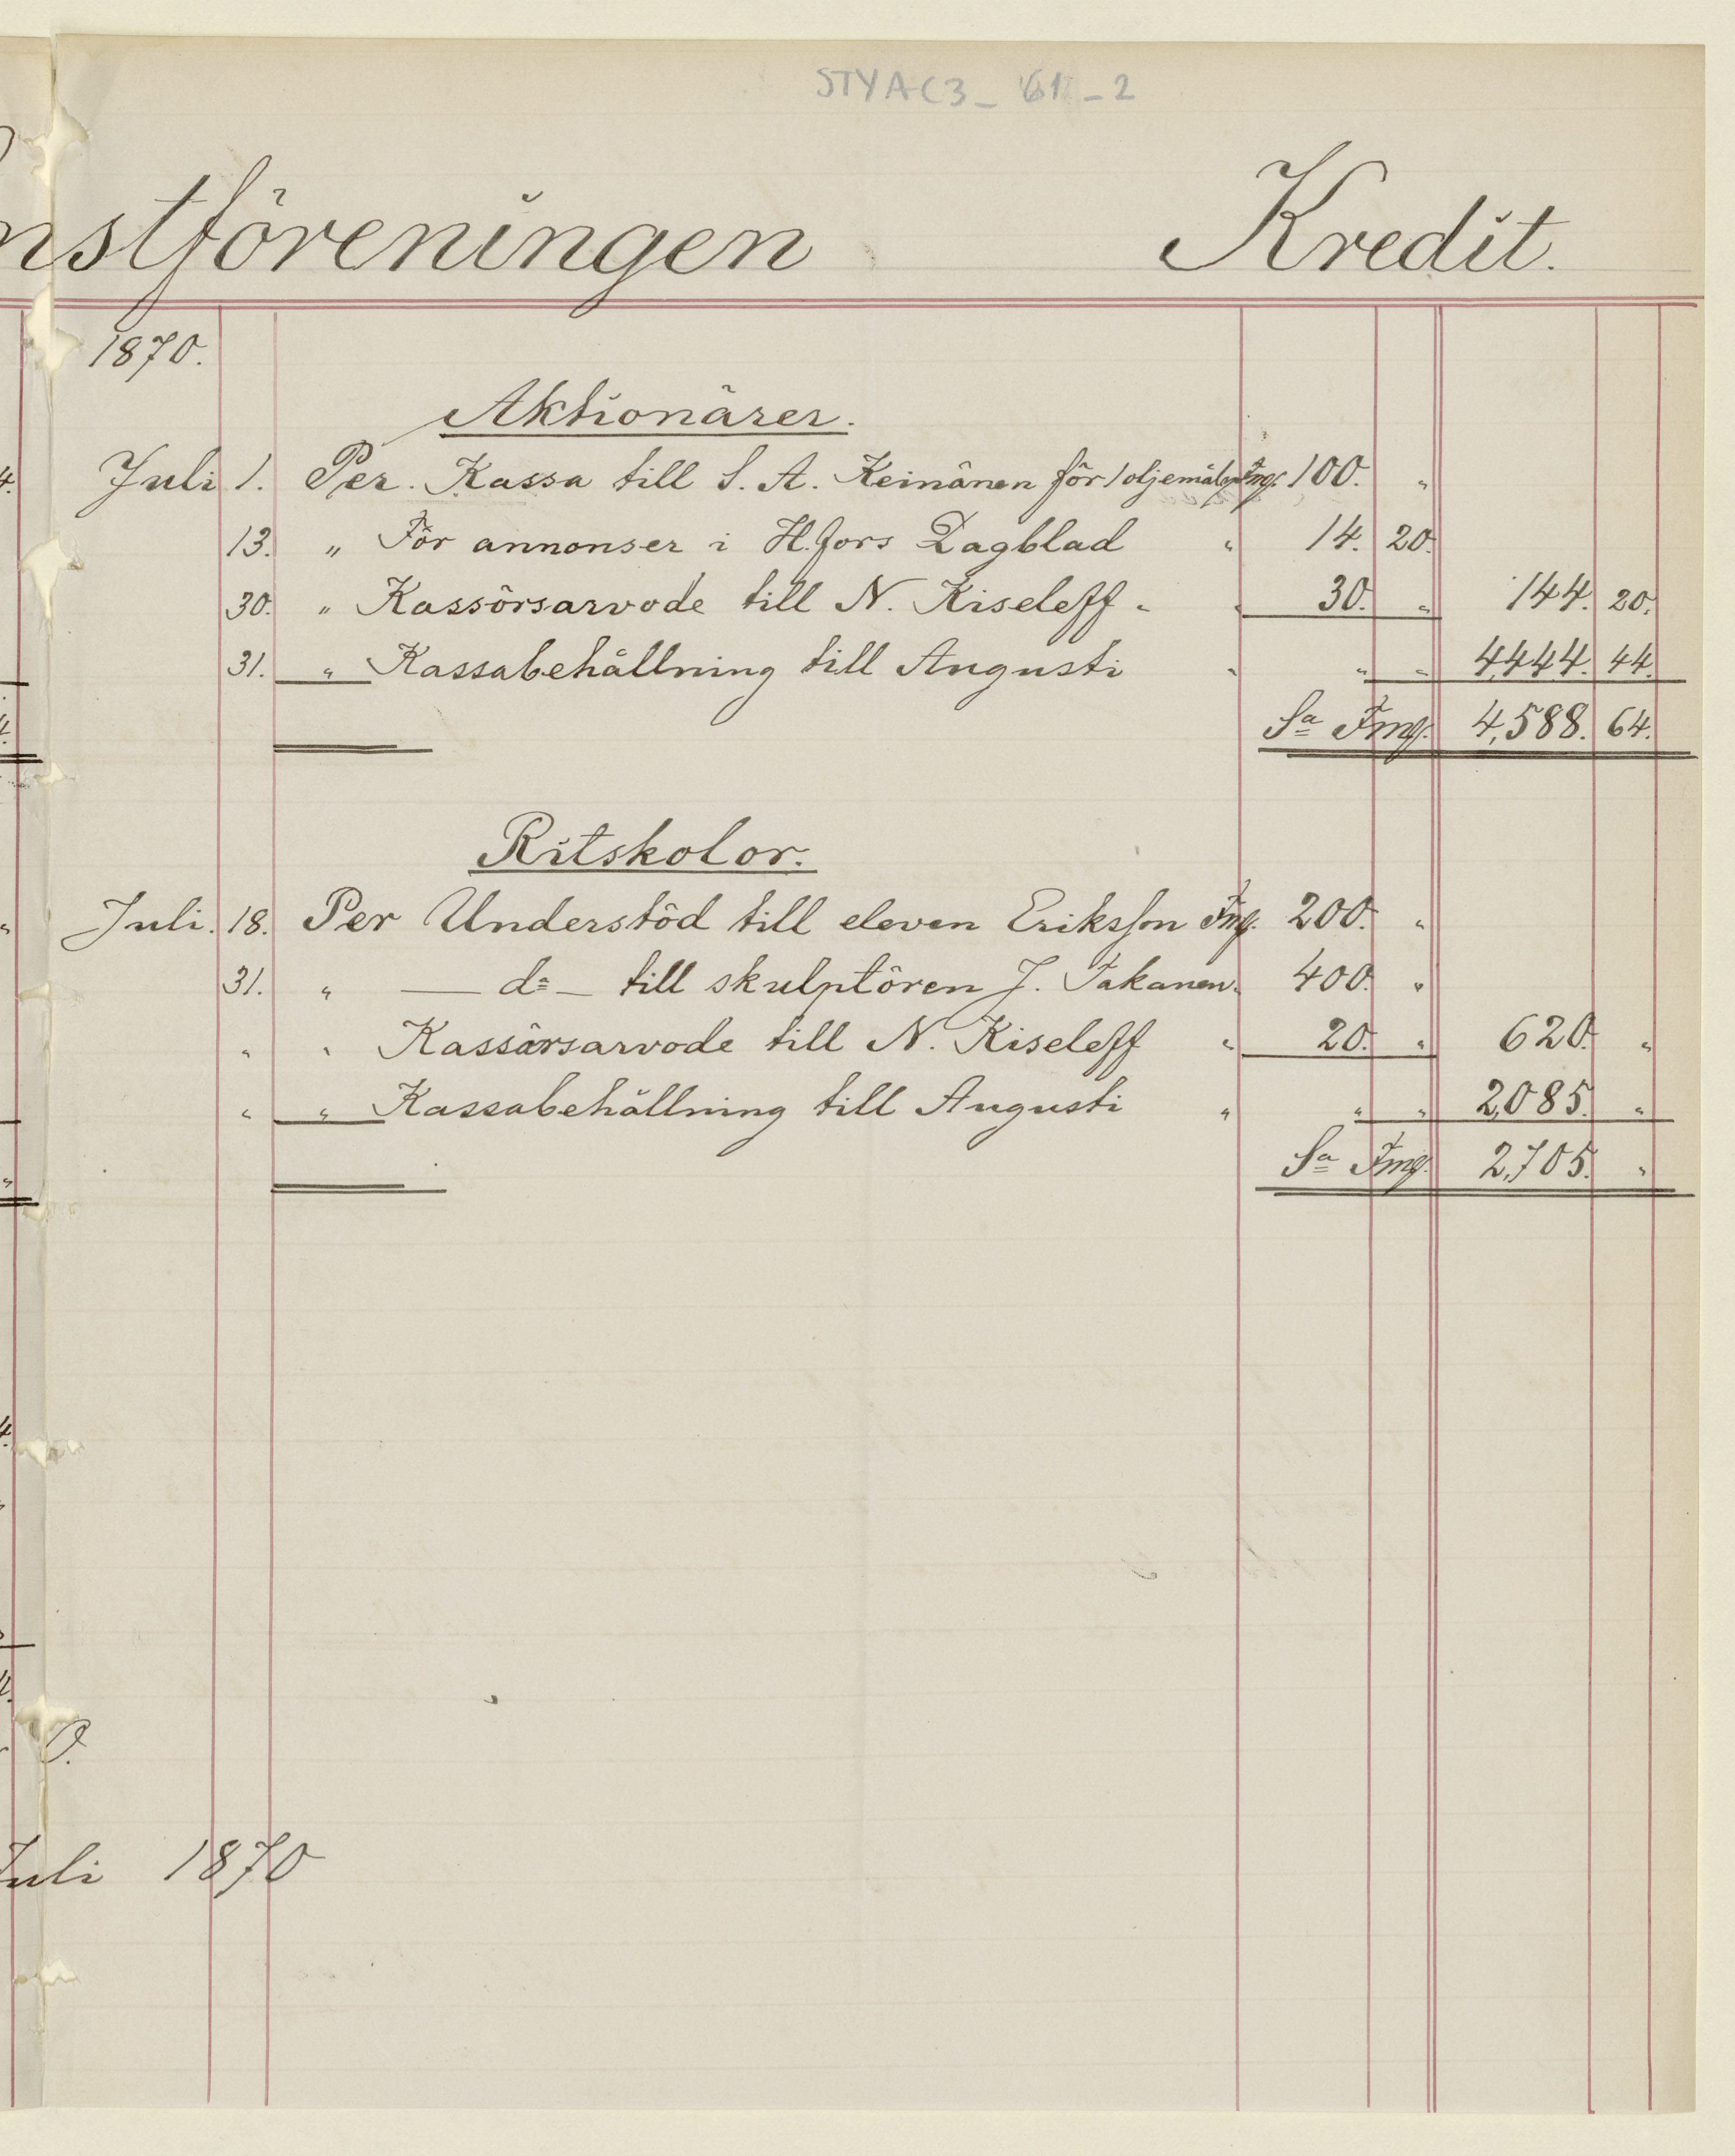 STYA C3_61_2
nstföreningen Kredit.
1870.
Aktionärer.
Juli 1. Per. Kassa till S. A. Keinänen för 1 oljemåln Fmg. 100. "
13. " För annonser i H.fors Dagblad " 14. 20.
30. " Kassörsarvode till N. Kiseleff " " 30. " 144. 20.
31. " Kassabehållning till Augusti " " " 4,444. 44.
Sa Fmg. 4,588. 64.
Ritskolor.
Juli. 18. Per Understöd till eleven Eriksson Fmg. 200. "
31. " — do — till skulptören J. Takanen " 400. "
" " Kassörsarvode till N. Kiseleff " 20. " 620. "
" " Kassabehållning till Augusti " " " 2,085. "
Sa Fmg. 2,705. "
Juli 1870